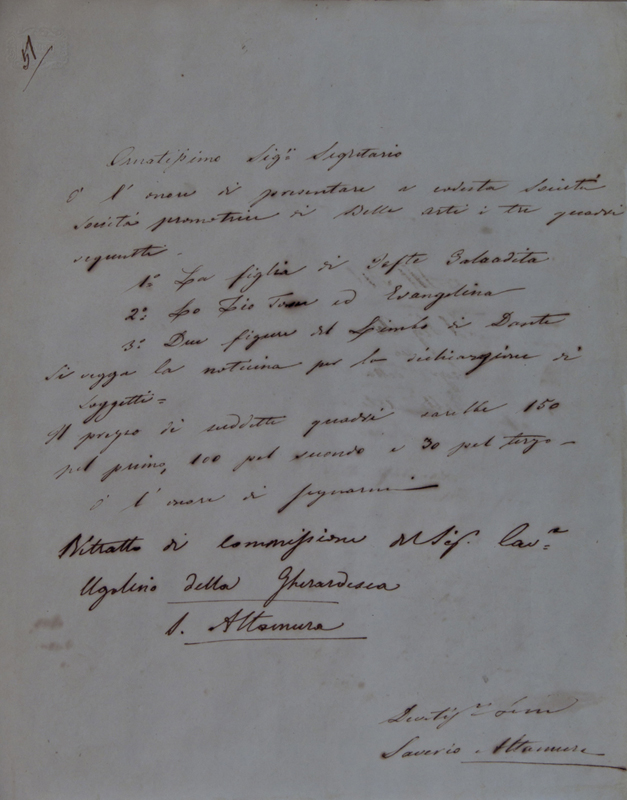 51
Ornatissimo Sigr Segretario
O l'onore di presentare a codesta Società
Società promotrice di Belle arti i tre quadri
seguenti
1o: La figlia di Jefte Galaadita
2o: Lo Zio Tom ed Evangelina
3o: Due figure del Limbo di Dante
Si vegga la noticina per la dichiarazione di
soggetti=
Il prezzo di suddetti quadri sarebbe 150
pel primo, 100 pel secondo e 30 pel terzo
O l'onore di segnarmi
Ritratto di commissione del Sigr. Cavre
Ugolino della Gherardesca
S. Altamura
Devotissmo
Saverio Altamura